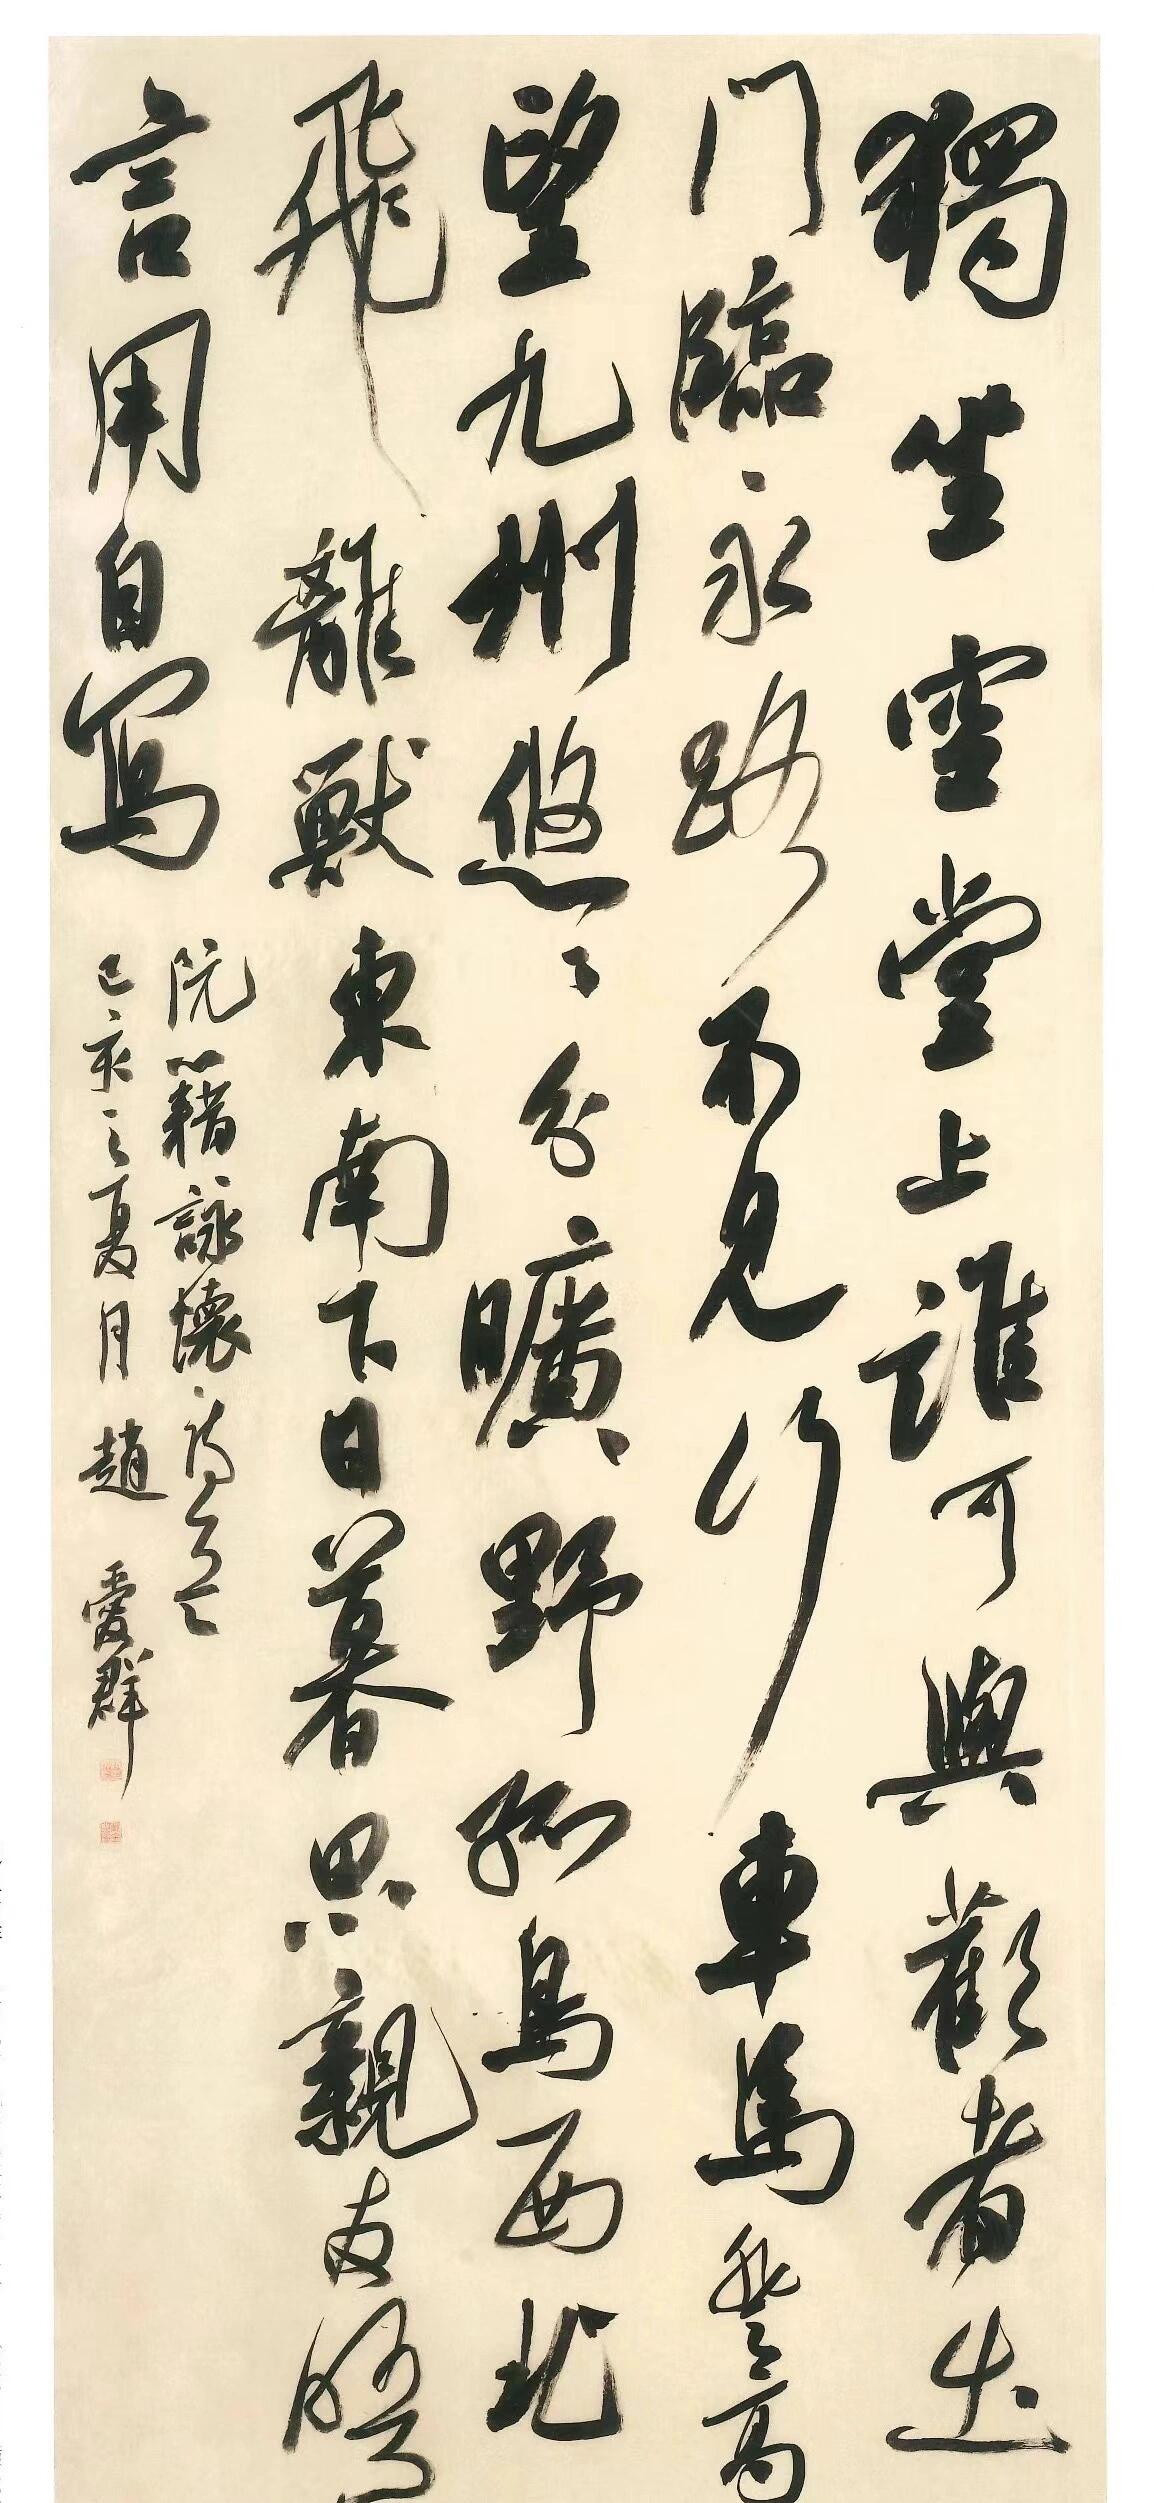 獨坐空堂上誰可與歡者出
門臨永路不見行車馬登高
望九州悠〻分曠野孤鳥西北
飛離獸東南下日暮思親友晤
言用自寫
阮籍詠懷詩一首
己亥之夏月趙愛群